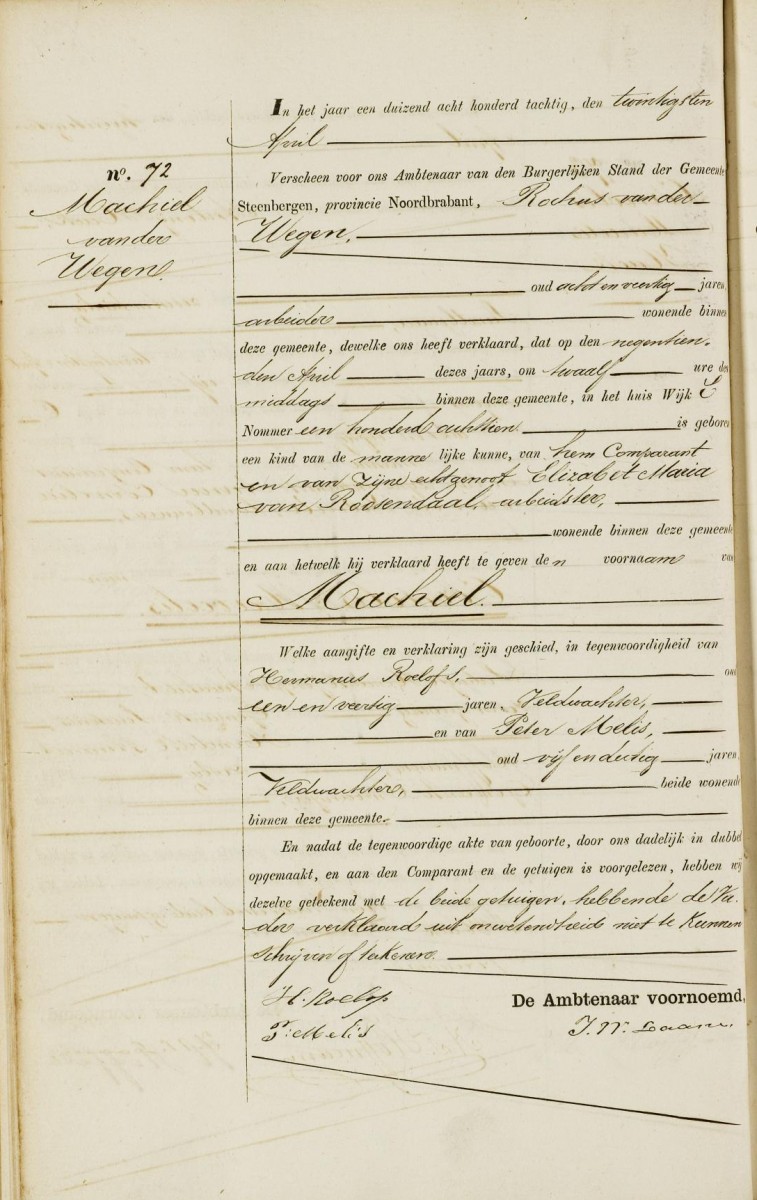 In het jaar een duizend acht honderd tachtig, den twintigsten
April
n°. 72
Machiel
vander
Wegen.
Verscheen voor ons Ambtenaar van den Burgerlijken Stand der Gemeente
Steenbergen, provincie Noordbrabant, Rochus vander
Wegen,
oud acht en veertig jaren,
arbeider wonende binnen
deze gemeente, dewelke ons heeft verklaard, dat op den negentien-
den April dezes jaars, om twaalf ure des
middags binnen deze gemeente, in het huis Wijk
Nommer een honderd achttien is geboren
een kind van de mannelijke kunne, van hem Comparant
en van zijne echtgenoot Elizabet Maria
van Roosendaal, arbeidster,
wonende binnen deze gemeente
en aan hetwelk hij verklaard heeft te geven den voornaam van
Machiel.
Welke aangifte en verklaring zijn geschied, in tegenwoordigheid van
Hermanus Roelofs, oud
een en veertig jaren, Veldwachter,
en van Peter Melis,
oud vijf en dertig jaren,
Veldwachter, beide wonende
binnen deze gemeente.
En nadat de tegenwoordige akte van geboorte, door ons dadelijk in dubbel
opgemaakt, en aan den Comparant en de getuigen is voorgelezen, hebben wij
dezelve geteekend met de beide getuigen, hebbende de Va-
der verklaard uit onwetendheid niet te kunnen
schrijven of teekenen.
H. Roelofs De Ambtenaar voornoemd,
P. Melis